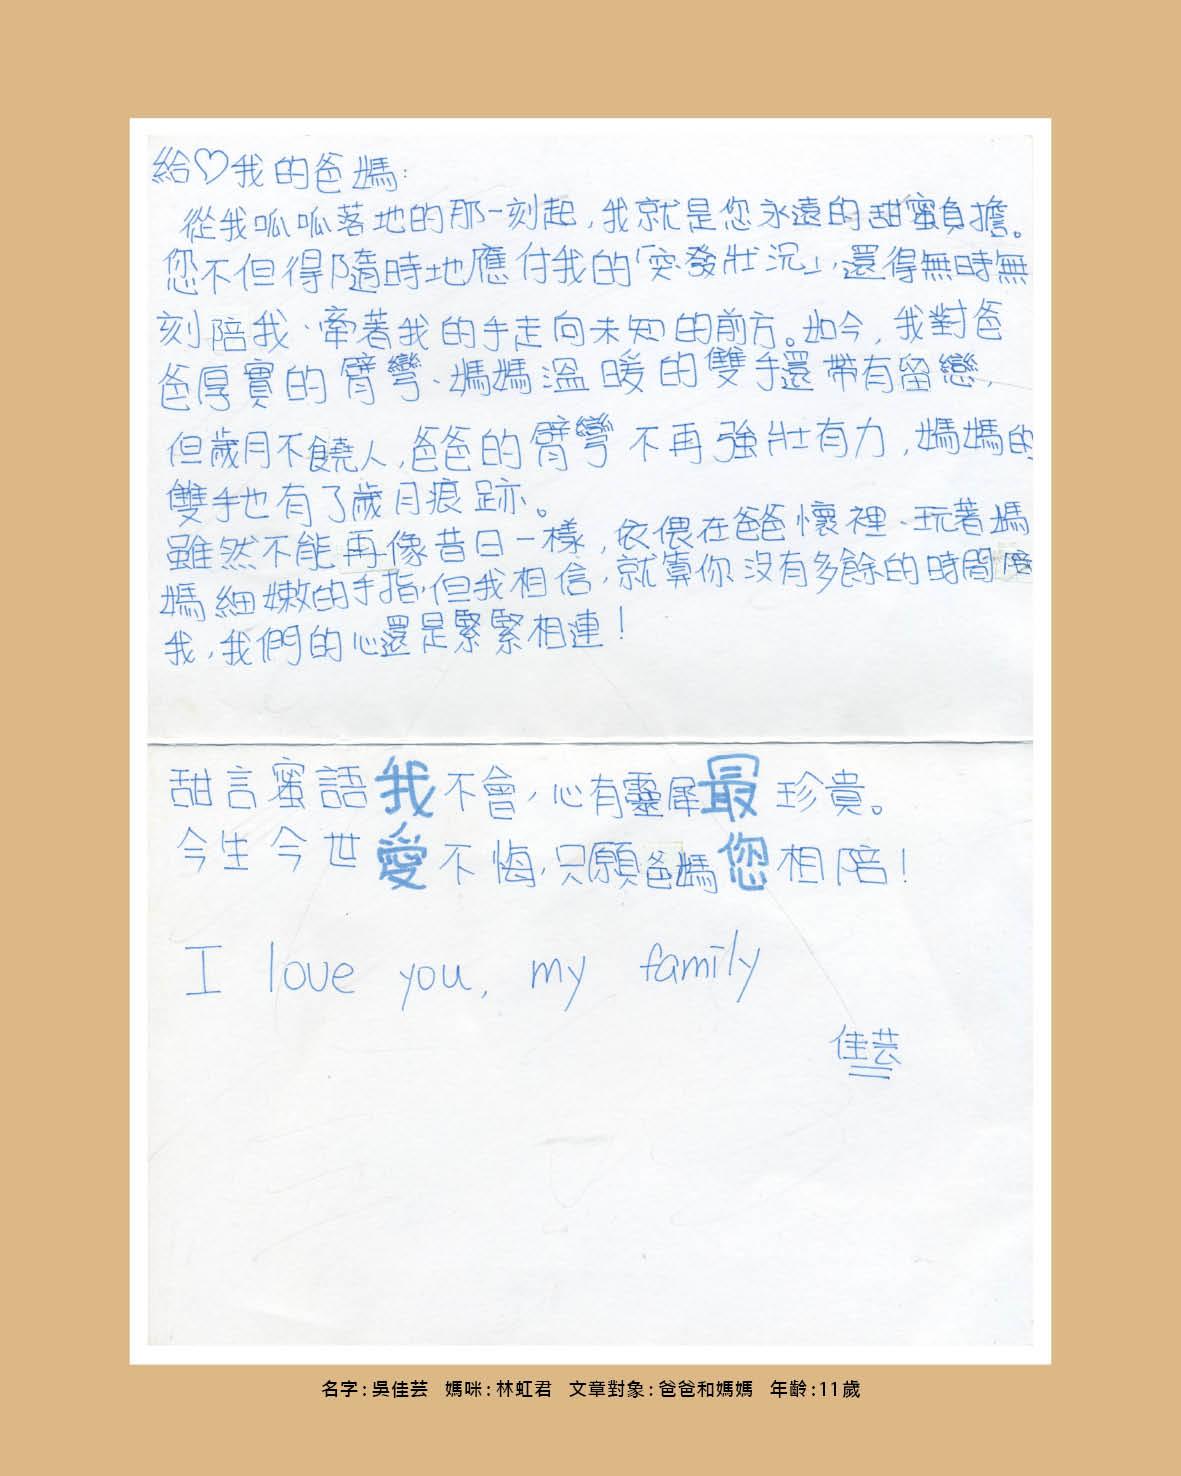 給♡我的爸媽:
從我呱呱落地的那一刻起,我就是您永遠的甜蜜負擔。
您不但得隨時地應付我的「突發狀況」,還得無時無
刻陪我、牽著我的手走向未知的前方。如今,我對爸
爸厚實的臂彎、媽媽溫暖的雙手還帶有留戀,
但歲月不饒人,爸爸的臂彎不再強壯有力,媽媽的
雙手也有了歲月痕跡。
雖然不能再像昔日一樣,依偎在爸爸懷裡、玩著媽
媽細嫩的手指,但我相信,就算你沒有多餘的時間陪
我,我們的心還是緊緊相連!
甜言蜜語我不會,心有靈犀最珍貴。
今生今世愛不悔,只願爸媽您相陪!
I love you, my family
佳芸
名字:吳佳芸 媽咪:林虹君 文章對象:爸爸和媽媽 年齡:11歲